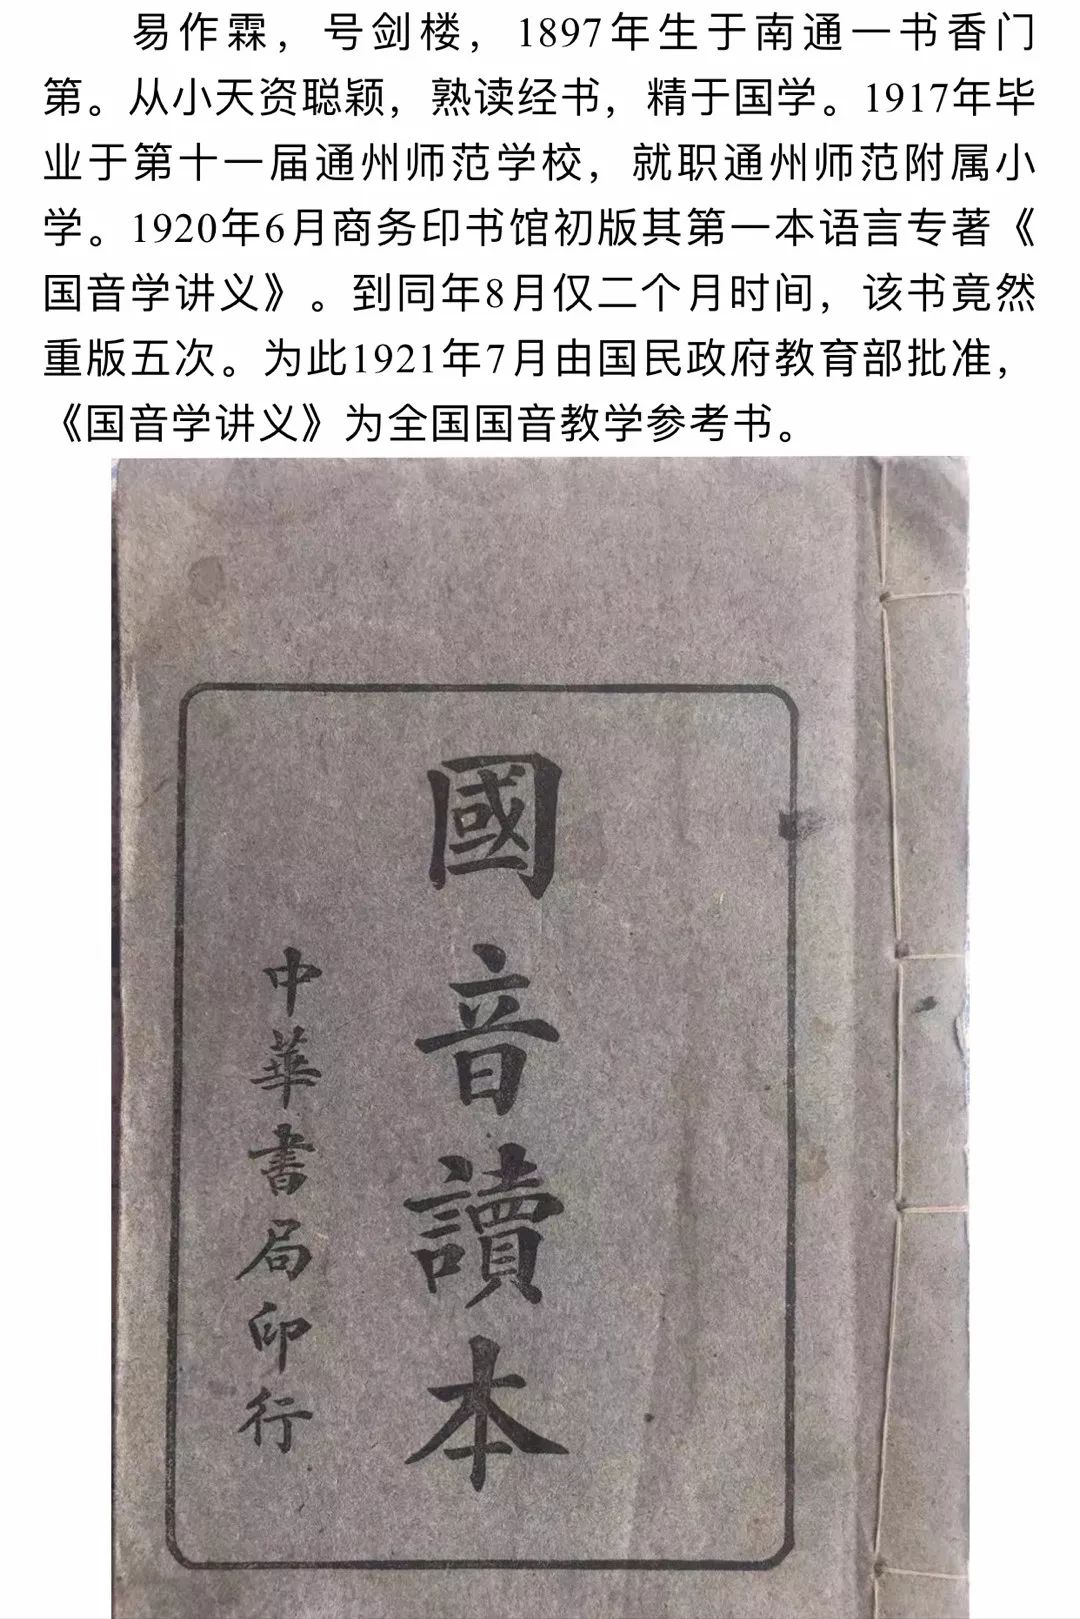 易作霖，号剑楼，1897年生于南通一书香门
第。从小天资聪颖，熟读经书，精于国学。1917年毕
业于第十一届通州师范学校，就职通州师范附属小
学。1920年6月商务印书馆初版其第一本语言专著《
国音学讲义》。到同年8月仅二个月时间，该书竟然
重版五次。为此1921年7月由国民政府教育部批准，
《国音学讲义》为全国国音教学参考书。
國音讀本
中華書局印行